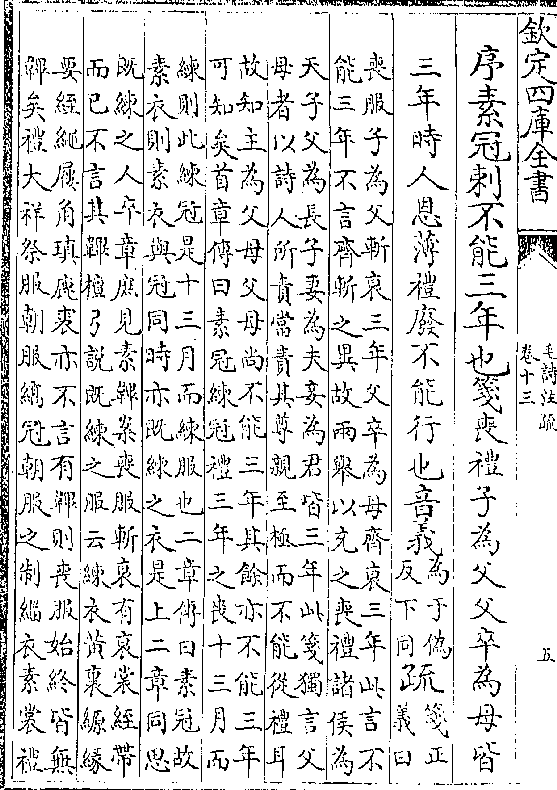 欽定四庫全書
毛詩注疏
卷十三
五
序素冠刺不能三年也箋喪禮子為父父卒為母皆
三年時人恩薄禮廢不能行也音義為于偽反下同疏箋正義曰
喪服子為父斬衰三年父卒為母齊衰三年此言不
能三年不言齊斬之異故兩舉以充之喪禮諸侯為
天子父為長子妻為夫妾為君皆三年此箋獨言父
母者以詩人所責當責其尊親至極而不能從禮耳
故知主為父母父母尚不能三年其餘亦不能三年
可知矣首章傳曰素冠練冠禮三年之喪十三月而
練則此練冠是十三月而練服也二章傳曰素冠故
素衣則素衣與冠同時亦既練之衣是上二章同思
既練之人卒章庶見素韠案喪服斬衰有衰裳絰帶
而已不言其韠檀弓說既練之服云練衣黃裏縓緣
要絰繩屨角瑱鹿裘亦不言有韠則喪服始終皆無
韠矣禮大祥祭服朝服縞冠朝服之制緇衣素裳禮